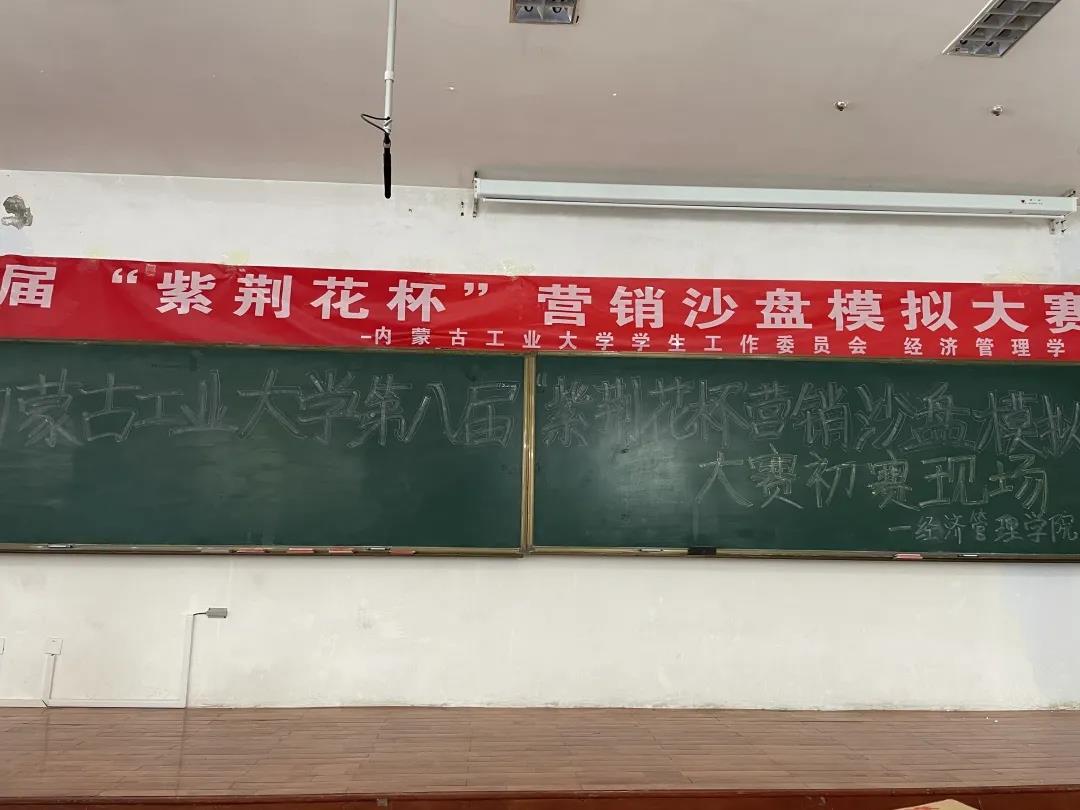 届 “紫荆花杯” 营销沙盘模拟大赛
—内蒙古工业大学学生工作委员会 经济管理学
蒙古工业大学第八届 “紫荆花杯营销沙盘模拟
大赛初赛现场
—经济管理学院